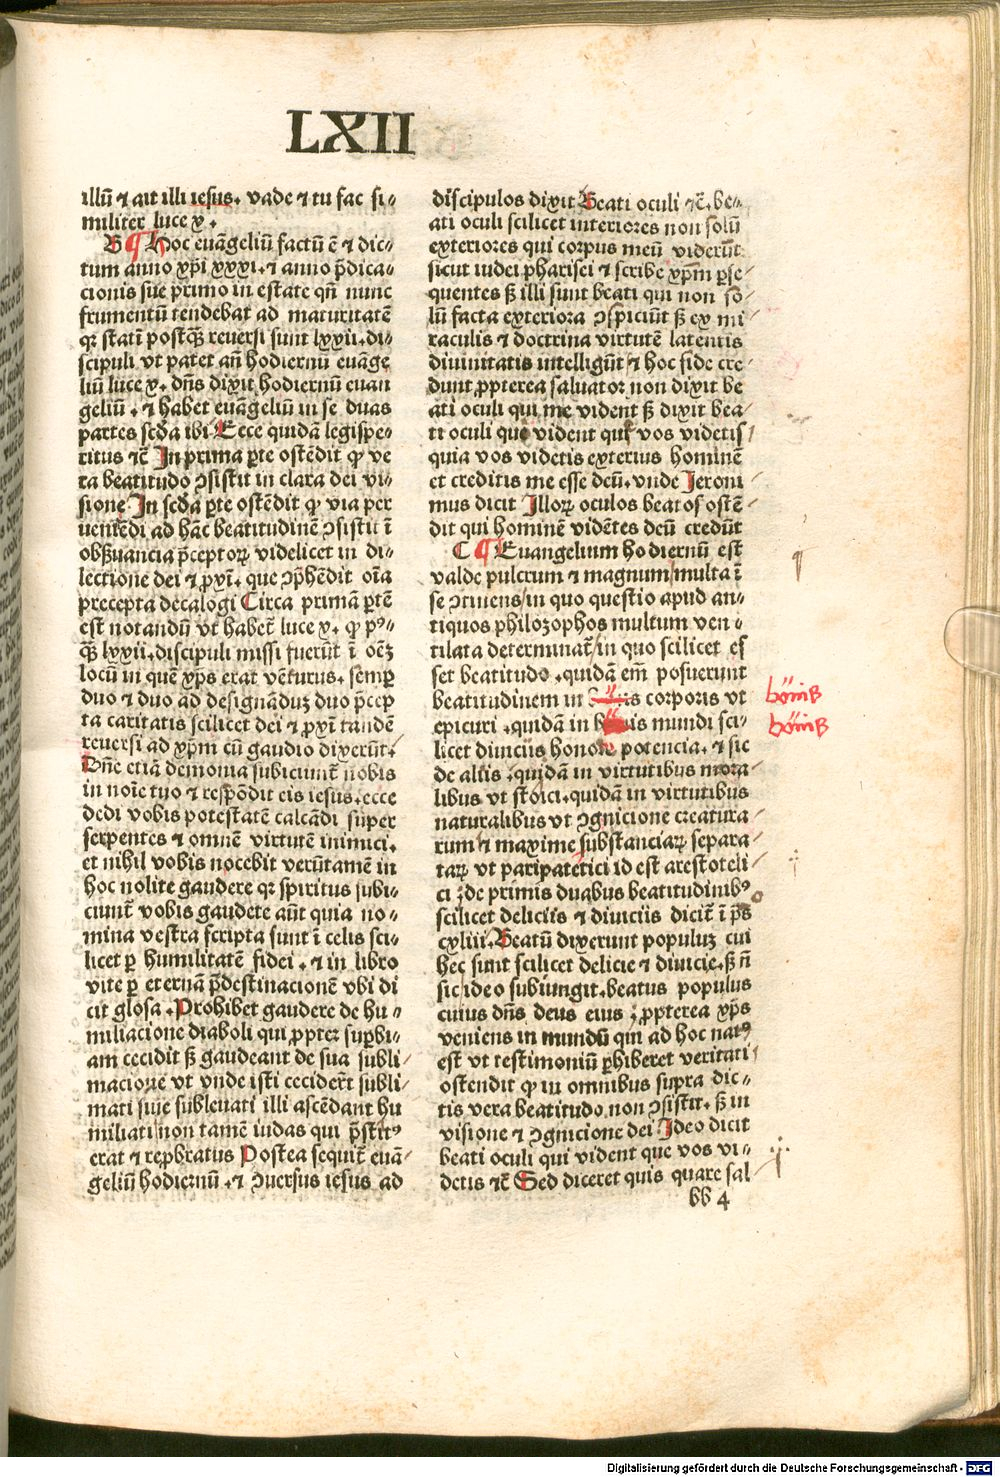 LXII
illū ⁊ ait illi iesus. vade ⁊ tu fac si-
militer luce x.
B ¶ Hoc euāgeliū factū ē ⁊ dic-
tum anno xp̄i xxxi. ⁊ anno p̄dica-
cionis sue primo in estate qñ nunc
frumentū tendebat ad maturitatē
qꝛ statī postq̄ꝫ reuersi sunt lxxii. di-
scipuli vt patet añ hodiernū euāge
liū luce x. dñs dixit hodiernū euan
geliū. ⁊ habet euāgeliū in se duas
partes scd̄a ibi Ecce quidā legispe-
ritus ⁊c̄ In prima ꝑte ostēdit ꝙ ve
ra beatitudo ꝯsistit in clara dei vi-
sione In scd̄a ꝑte ostēdit ꝙ via per
ueniēdi ad hāc beatitudinē ꝯsistit ī
obẞuancia p̄ceptoꝝ videlicet in di-
lectione dei ⁊ ꝓxī. que ꝯp̄hēdit oīa
precepta decalogi Circa primā ꝑtē
est notandū vt habet̄ luce x. ꝙ pꝰ-
q̄ꝫ lxxii. discipuli missi fuerūt ī oēꝫ
locū in quē xp̄s erat vēturus. semꝑ
duo ⁊ duo ad designāduꝫ duo p̄cep
ta caritatis scilicet dei ⁊ ꝓxī tandē
reuersi ad xp̄m cū gaudio dixerūt.
Dñe etiā demonia subiciunt̄ nobis
in noīe tuo ⁊ respōdit eis iesus. ecce
dedi vobis potestatē calcādi super
serpentes ⁊ omnē virtutē inimici.
et nihil vobis nocebit verūtamē in
hoc nolite gaudere qꝛ spiritus subi-
ciunt̄ vobis gaudete aūt quia no-
mina vestra scripta sunt ī celis sci-
licet ꝑ humilitatē fidei. ⁊ in libro
vite ꝑ eternā p̄destinacionē vbi di
cit glosa. Prohibet gaudere de hu-
miliacione diaboli qui ꝓpter suꝑbi-
am cecidit ẞ gaudeant de sua subli-
macione vt vnde isti ceciderūt subli-
mati siue subleuati illi ascēdant hu
miliati non tamē iudas qui p̄stitꝰ
erat ⁊ reꝓbratus Postea sequit̄ euā-
geliū hodiernū. ⁊ ꝯuersus iesus ad
discipulos dixit Beati oculi ⁊c̄. be-
ati oculi scilicet interiores non solū
exteriores qui corpus meū viderūt
sicut iudei pharisei ⁊ scribe xp̄m ꝑse-
quentes ẞ illi sunt beati qui non so-
lū facta exteriora ꝯspiciūt ẞ ex mi-
raculis ⁊ doctrina virtutē latentis
diuinitatis intelligūt ⁊ hoc fide cre-
dunt ꝓpterea saluator non dixit be
ati oculi qui me vident ẞ dixit bea-
ti oculi qui vident que vos videtis
quia vos videtis exterius hominē
et creditis me esse deū. vnde Jeroni-
mus dicit Illoꝝ oculos beatos ostē-
dit qui hominē vidētes deū credūt
C ¶ Euangelium hodiernū est
valde pulcrum ⁊ magnum multa ī
se ꝯtinens in quo questio apud an-
tiquos philozophos multum ven-
tilata determinat̄ in quo scilicet es
set beatitudo. quidā em̄ posuerunt
beatitudinem in bōnis corporis vt
bōnis
epicuri. quidā in bōnis mundi sci-
bōnis
licet diuiciis honore potencia. ⁊ sic
de aliis. quidā in virtutibus mora-
libus vt stoici. quidā in virtutibus
naturalibus vt ꝯgnicione creatura-
rum ⁊ maxime substanciaꝝ separa-
taꝝ vt paripatetici id est arestoteli-
ci ; de primis duabus beatitudinibꝰ
scilicet deliciis ⁊ diuiciis dicit̄ ī p̄s
cxliii. Beatū dixerunt populuꝫ cui
hec sunt scilicet delicie ⁊ diuicie. ẞ ñ
sic ideo subiungit. beatus populus
cuius dñs deus eius ; ꝓpterea xp̄s
veniens in mundū qui ad hoc natꝰ
est vt testimoniū ꝑhiberet veritati
ostendit ꝙ in omnibus supra dic-
tis vera beatitudo non ꝯsistit. ẞ in
visione ⁊ ꝯgnicione dei Ideo dicit
beati oculi qui vident que vos vi-
detis ⁊c̄ Sed diceret quis quare sal
bb 4
Digitalisierung gefördert durch die Deutsche Forschungsgemeinschaft - DFG